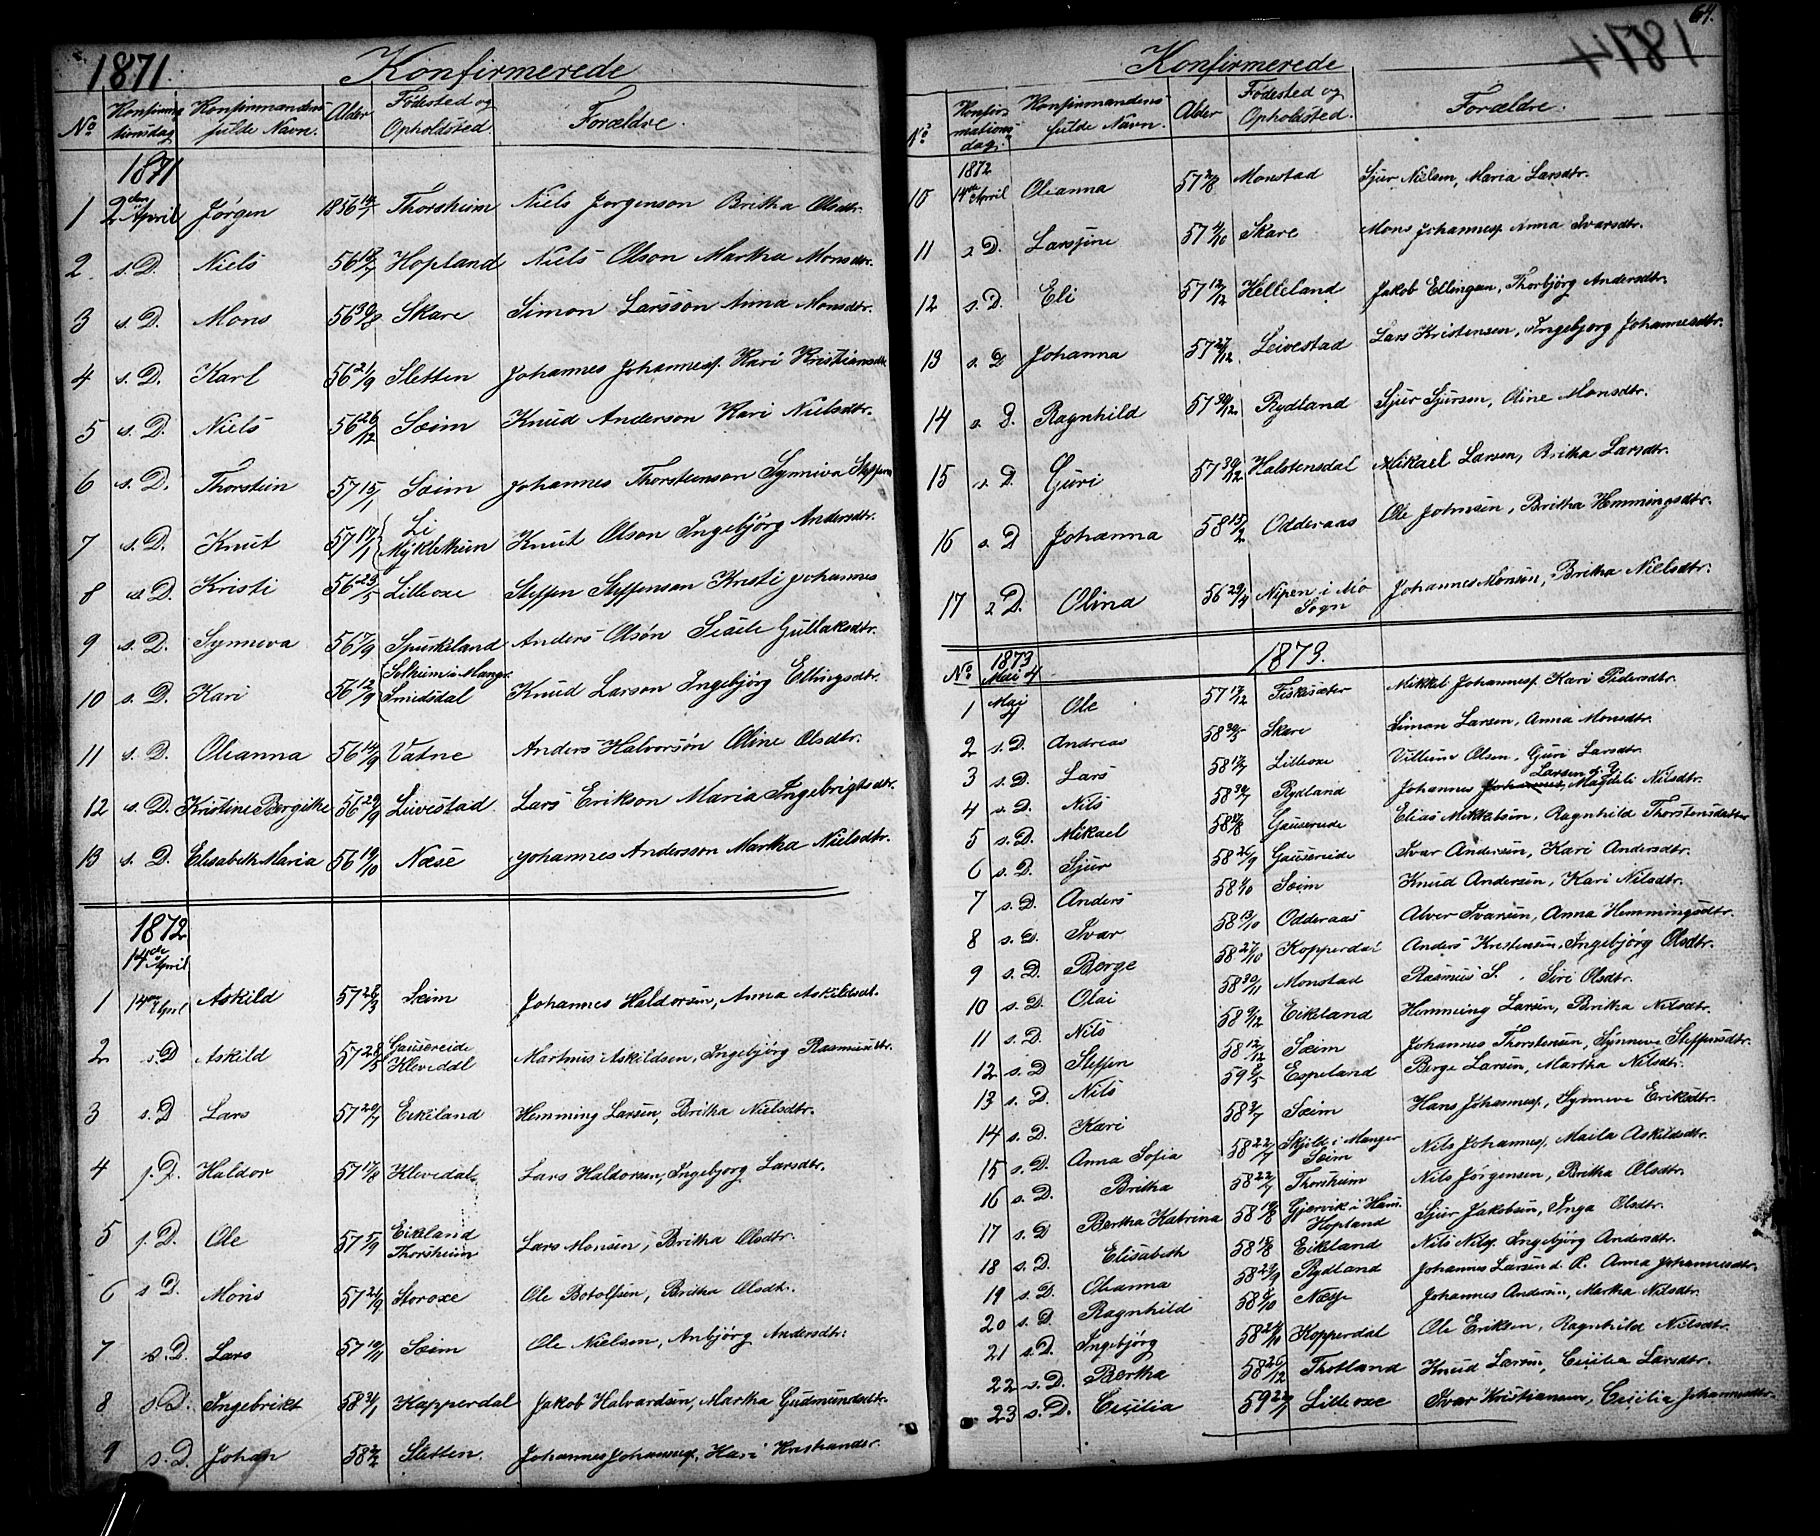 1871. Konfirmerede
No Konfirmationsdag Konfirmandens fulde Navn. Alder Fødested og Opholdsted. Forældre.
1871
1 2den April Jørgen 1856 14/7 Thorsheim Niels Jørgenson Britha Olsdtr.
2 s. D. Niels 56 18/7 Hopland Niels Olson Martha Monsdtr.
3 s. D. Mons 56 30/8 Skare Simon Larsson Anna Monsdtr.
4 s. D. Karl 56 21/9 Sletten Johannes Johannesf. Kari Kristiansdtr
5 s. D. Niels 56 26/12 Sæim Knud Anderson Kari Nielsdtr.
6 s. D. Thorstein 57 15/1 Sæim Johannes Thorstenson Synneva Steffens
7 s. D. Knut 57 17/1 Li Myklethun Knut Olson Ingebjörg Andersdtr.
8 s. D. Kristi 56 25/5 Lilleoxe Steffen Steffenson Kristi Johannes
9 s. D. Synneva 56 7/9 Spurkeland Anders Olsøn Sisele Gullaksdtr.
10 s. D. Kari 56 12/9 Solheim i Mang. Smidsdal Knud Larson Ingebjörg Ellingsdtr.
11 s. D. Oleanna 56 14/9 Vatne Anders Halvorsön Oline Olsdtr.
12 s. D. Kristine Bergithe 56 29/9 Leivestad Lars Erikson Maria Ingebrigtsdtr.
13 s. D. Elisabeth Maria 56 19/10 Næse Johannes Andersson Martha Nielsdtr.
1872
14de April
1 14de April Askild 57 28/3 Sæim Johannes Haldorsen, Anna Askildsdt.
2 s. D Askild 57 28/5 Gausereide Klevedal Martinus Askildsen, Ingebjörg Rasmusdtr.
3 s. D Lars 57 20/7 Eikeland Hemming Larsen, Britha Nielsdtr.
4 s. D. Haldor 57 17/8 Klevedal Lars Haldorsen, Ingebjorg Larsdtr.
5 s. D. Ole 57 5/9 Eikeland Thorsheim Lars Monsen, Britha Olsdtr.
6 s D. Mons 57 21/9 Storoxe Ole Botolfsen, Britha Olsdtr.
7 s. D. Lars 57 10/11 Sæim Ole Nielsen, Anbjørg Andersdtr.
8 s. D. Ingebrikt 58 31/1 Kopperdal Jakob Halvardsen, Martha Gudmundsdtr.
9 s. D. Johan 58 2/2 Sletten. Johannes Johannesf. Kari Kristiansdtr.
64.
1874
Konfirmerede
No Konfirmationsdag. Konfirmandens fulde Navn. Alder Fødested og Opholdsted. Forældre.
1872
10 14de April Oleanna 57 2/8 Monstad Sjur Nielsen, Maria Larsdtr.
11 s D. Larsine 57 4/10 Skare Mons Johannesf. Anna Ivarsdtr.
12 s. D. Eli 57 12/12 Helleland Jakob Ellingsen, Thorbjörg Andersdtr.
13 s. D Johanna 57 27/12 Leivestad Lars Kristensen, Ingebjorg Johannesdtr.
14 s. D. Ragnhild 57 30/12 Rydland Sjur Sjursen, Oline Monsdtr.
15 s. D. Guri 57 30/12 Halstensdal Mikael Larsen, Britha Larsdtr.
16 s. D Johanna 58 15/2 Odderaas Ole Johnsen, Britha Hemmingsdtr.
17 s D. Olina 56 29/4 Nipen i Mo Sogn Johannes Monsen, Britha Nielsdtr.
No 1873 Mai 4 1873.
1 Mai 4 Ole 57 17/12 Fiskesæter Mikkel Johannesf. Kari Pedersdtr.
2 s. D. Andreas 58 30/5 Skare Simon Larsen, Anna Monsdtr.
3 s. D. Lars 58 17/7 Lilleoxe Villum Olsen, Guri Larsdtr.
4 s. D. Nils 58 30/7 Rydland Johannes Johannes Larsen d. y. Magdeli Nilsdtr.
5 s. D. Mikael 58 17/8 Gausereide Elias Mikkelsen, Ragnhild Thorstensdatter
6 s. D. Sjur 58 26/9 Gausereide Ivar Andersen, Kari Andersdtr.
7 s. D. Anders 58 4/10 Sæim Knud Andersen, Kari Nilsdtr.
8 s. D. Ivar 58 13/10 Odderaas Alver Ivarsen, Anna Hemmingsdtr.
9 s. D. Berge 58 27/10 Kopperdal Anders Kristensen, Ingebjörg Olsdtr.
10 s. D. Olai 58 30/11 Monstad Rasmus S. Siri Olsdtr.
11 s. D. Nils 58 9/12 Eikeland Hemming Larsen, Britha Nilsdtr.
12 s. D Steffen 58 12/12 Sæim Johannes Thorstensen, Synneve Steffensdtr.
13 s. D. Nils 59 8/5 Espeland Berge Larsen, Martha Nilsdtr.
14 s. D. Kari 58 2/7 Sæim Hans Johannesf., Synneve Eriksdtr.
15 s. D. Anna Sofia 58 22/7 Skjelde i Manger Sæim Nils Johannesf. Maila Askildsdtr.
16 s. D. Britha 58 22/7 Thorsheim Nils Jörgensen, Britha Olsdtr.
17 s. D Bertha Katrina 58 19/8 Gjervik i Ham. Hopland Sjur Jakobsen, Inga Olsdtr.
18 s. D. Elisabeth 58 15/8 Eikeland Nils Nilsf. Ingebjörg Andersdtr.
19 s. D. Oleanna 58 29/9 Rydland Johannes Larsen d. Æ. Anna Johannesdtr.
20 s. D. Ragnhild 58 8/10 Næse Johannes Andersen, Martha Nilsdtr.
21 s. D. Ingebjörg 58 24/11 Kopperdal Ole Eriksen, Ragnhild Nielsdtr.
22 s. D. Bertha 58 26/12 Thotland Knud Larsen, Cecilia Larsdtr.
23 s. D. Cecilia 59 22/1 Lilleoxe Ivar Kristiansen, Cecilia Johannesdtr.